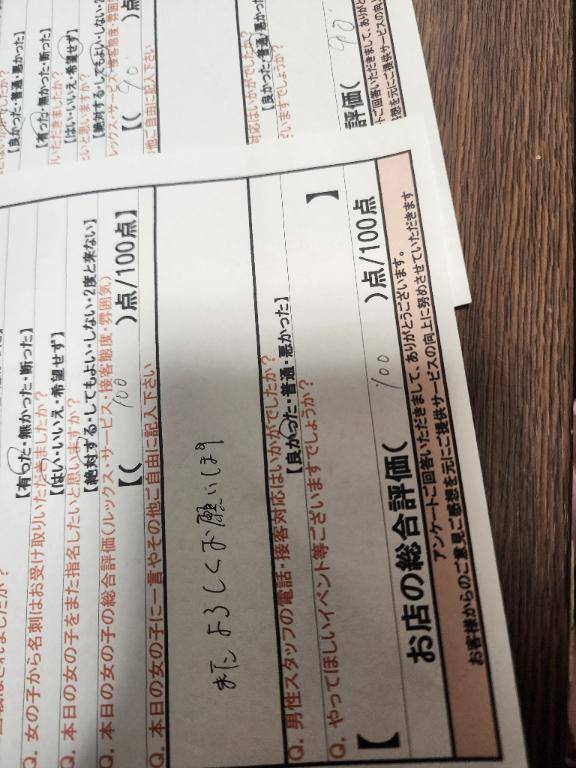 【有った・無かった・断った】
Q. 女の子から名刺はお受け取りいただきましたか？
【はい・いいえ・希望せず】
Q. 本日の女の子をまた指名したいと思いますか？
【絶対する・してもよい・しない・2度と来ない】
Q. 本日の女の子の総合評価(ルックス・サービス・接客態度・雰囲気)
【( 100 )点/100点】
Q. 本日の女の子に一言やその他ご自由に記入下さい
またよろしくお願いします
Q. 男性スタッフの電話・接客対応はいかがでしたか？
【良かった・普通・悪かった】
Q. やってほしいイベント等ございますでしょうか？
【 】
お店の総合評価( 100 )点/100点
アンケートご回答いただきまして、ありがとうございます。
お客様からのご意見ご感想を元にご提供サービスの向上に努めさせていただきます
【良かった・普通・悪かった】
【有った・無かった・断った】
【はい・いいえ・希望せず】
【( 90 )点
他ご自由に記入下さい
対応はいかがでしたか？
【良かった・普通・悪かった
評価( 90